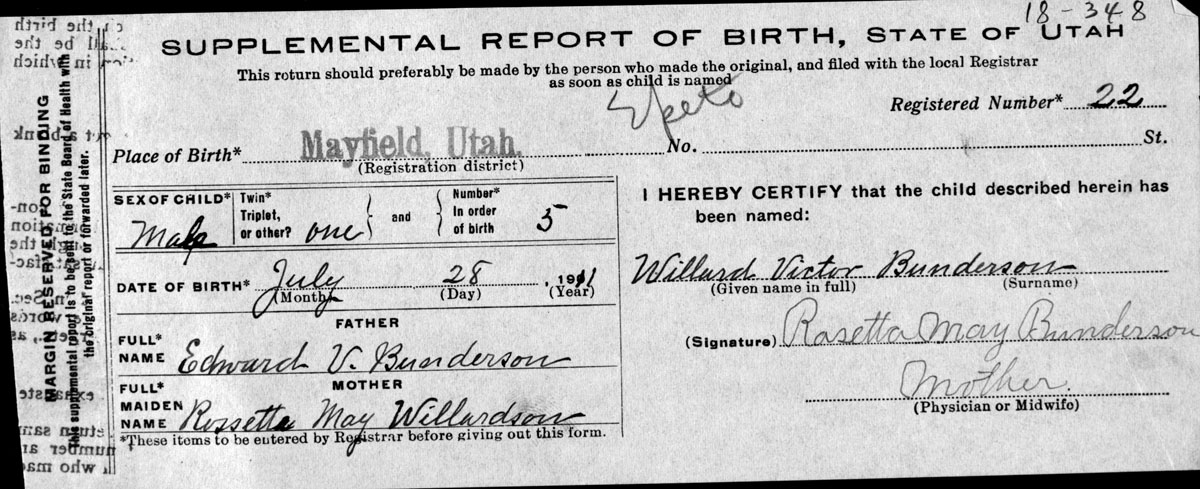 18-348
SUPPLEMENTAL REPORT OF BIRTH, STATE OF UTAH
This roturn should preferably be made by the person who made the original, and filed with the local Registrar
as soon as child is named
Registered Number* 22
Place of Birth* Mayfield, Utah. No. St.
(Registration district)
SEX OF CHILD* Male
Twin* Triplet, or other? one and Number* In order of birth 5
DATE OF BIRTH* July 28, 1911
(Month) (Day) (Year)
FATHER
FULL* NAME Edward V. Bunderson
MOTHER
FULL* MAIDEN NAME Rossetta May Willardson
*These items to be entered by Registrar before giving out this form.
I HEREBY CERTIFY that the child described herein has
been named:
Willard Victor Bunderson
(Given name in full) (Surname)
(Signature) Rosetta May Bunderson
Mother.
(Physician or Midwife)
MARGIN RESERVED FOR BINDING
This supplemental report is to be sent to the State Board of Health with
the original report or forwarded later.